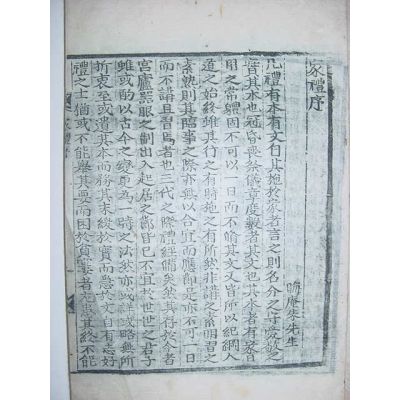 家禮序
晦庵朱先生
凡禮有本有文自其施於家者言之則名分之守愛敬之
實其本也冠昏喪祭儀章度數者其文也其本者有家日
用之常體固不可以一日而不脩其文又皆所以紀綱人
道之始終雖其行之有時施之有所然非講之素明習之
素熟則其臨事之際亦無以合宜而應節是亦不可一日
而不講且習焉者也三代之際禮經備矣然其存於今者
宮廬器服之制出入起居之節皆已不宜於世世之君子
雖或酌以古今之變更為一時之法然亦或詳或略無所
折衷至或遺其本而務其末緩於實而急於文自有志好
禮之士猶或不能舉其要而困於貧窶者尤患其終不能
家禮序